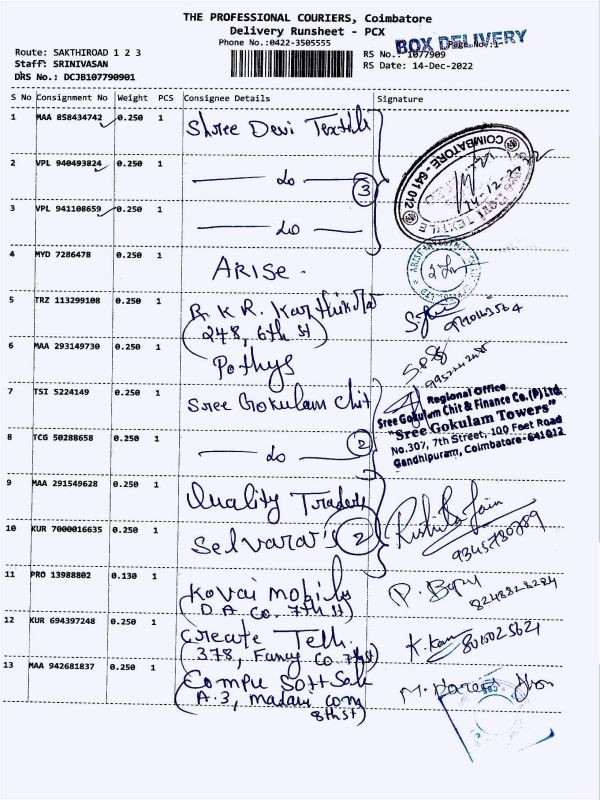 THE PROFESSIONAL COURIERS, Coimbatore
Delivery Runsheet - PCX
Phone No.:0422-3505555
BOX DELIVERY
Page No.:1
Route: SAKTHIROAD 1 2 3
RS No.: 1077909
Staff: SRINIVASAN
RS Date: 14-Dec-2022
DRS No.: DCJB107790901
S No Consignment No Weight PCS Consignee Details Signature
1 MAA 858434742 0.250 1 Shree Devi Textile
COIMBATORE - 641 012
2 VPL 940493824 0.250 1 do 3
14-12-22
3 VPL 941108659 0.250 1 do
4 MYD 7286478 0.250 1 ARISE.
5 TRZ 113299108 0.250 1 R. K R. Karthik
(248, 6th st)
6 MAA 293149730 0.250 1 Pothys
7 TSI 5224149 0.250 1 Sree Gokulam Chit
Regional Office
Sree Gokulam Chit & Finance Co.(P) Ltd.
"Sree Gokulam Towers"
No.307, 7th Street, 100 Feet Road
Gandhipuram, Coimbatore-641012
8 TCG 50288658 0.250 1 do 2
9 MAA 291549628 0.250 1 Quality Traders
10 KUR 7000016635 0.250 1 Selvarar's 2
9345780789
11 PRO 13988802 0.130 1 Kovai mobile
(D.A. Co. 7th st)
8248828284
12 KUR 694397248 0.250 1 Create Tech.
(378, Fancy Co. 7th st)
13 MAA 942681837 0.250 1 Compu Soft
(A.3, madari com
8th st)